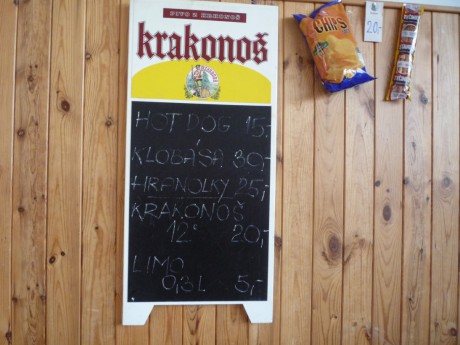 krakonoš
HOT DOG 15,-
KLOBÁSA 30,-
HRANOLKY 25,-
KRAKONOŠ
12° 20,-
LIMO
0,3L 5,-
CHIPS
20,-